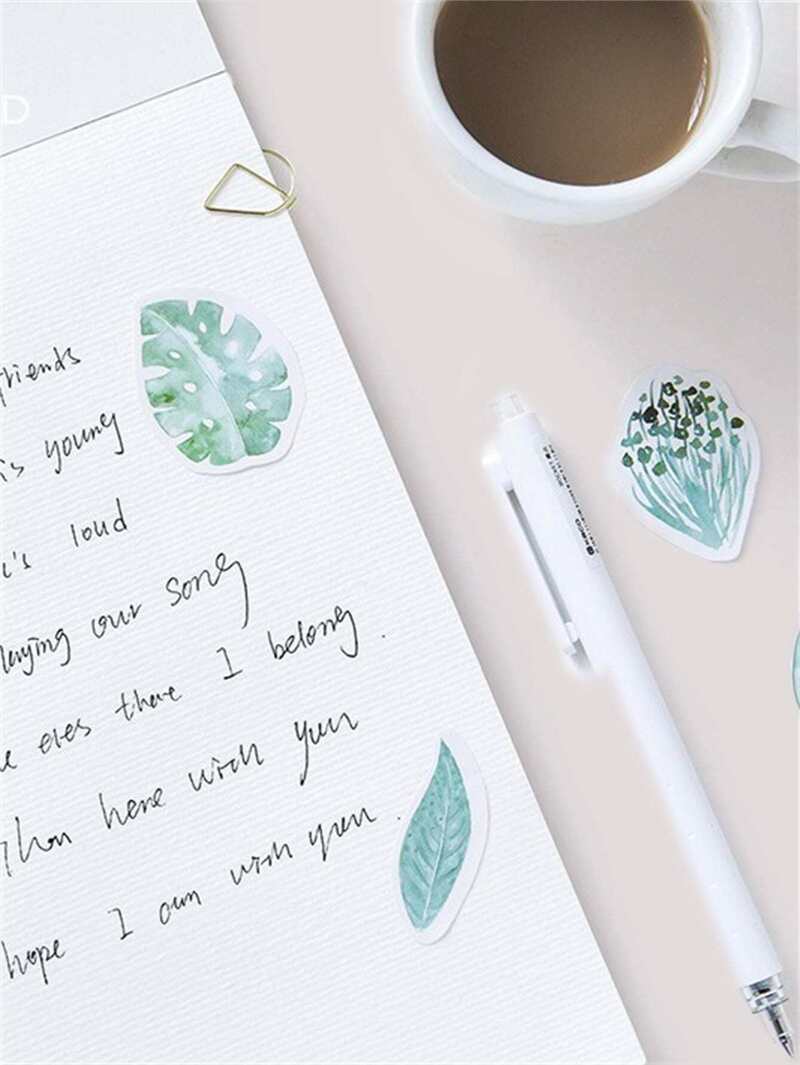 D
friends
is young
's loud
laying our song
e ones there I belong.
than here with you
hope I am with you.
KACO